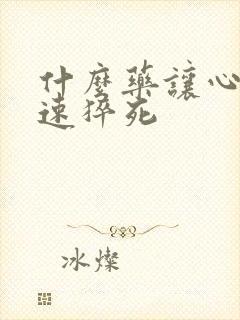 什麼藥讓心
速猝死
冰燦